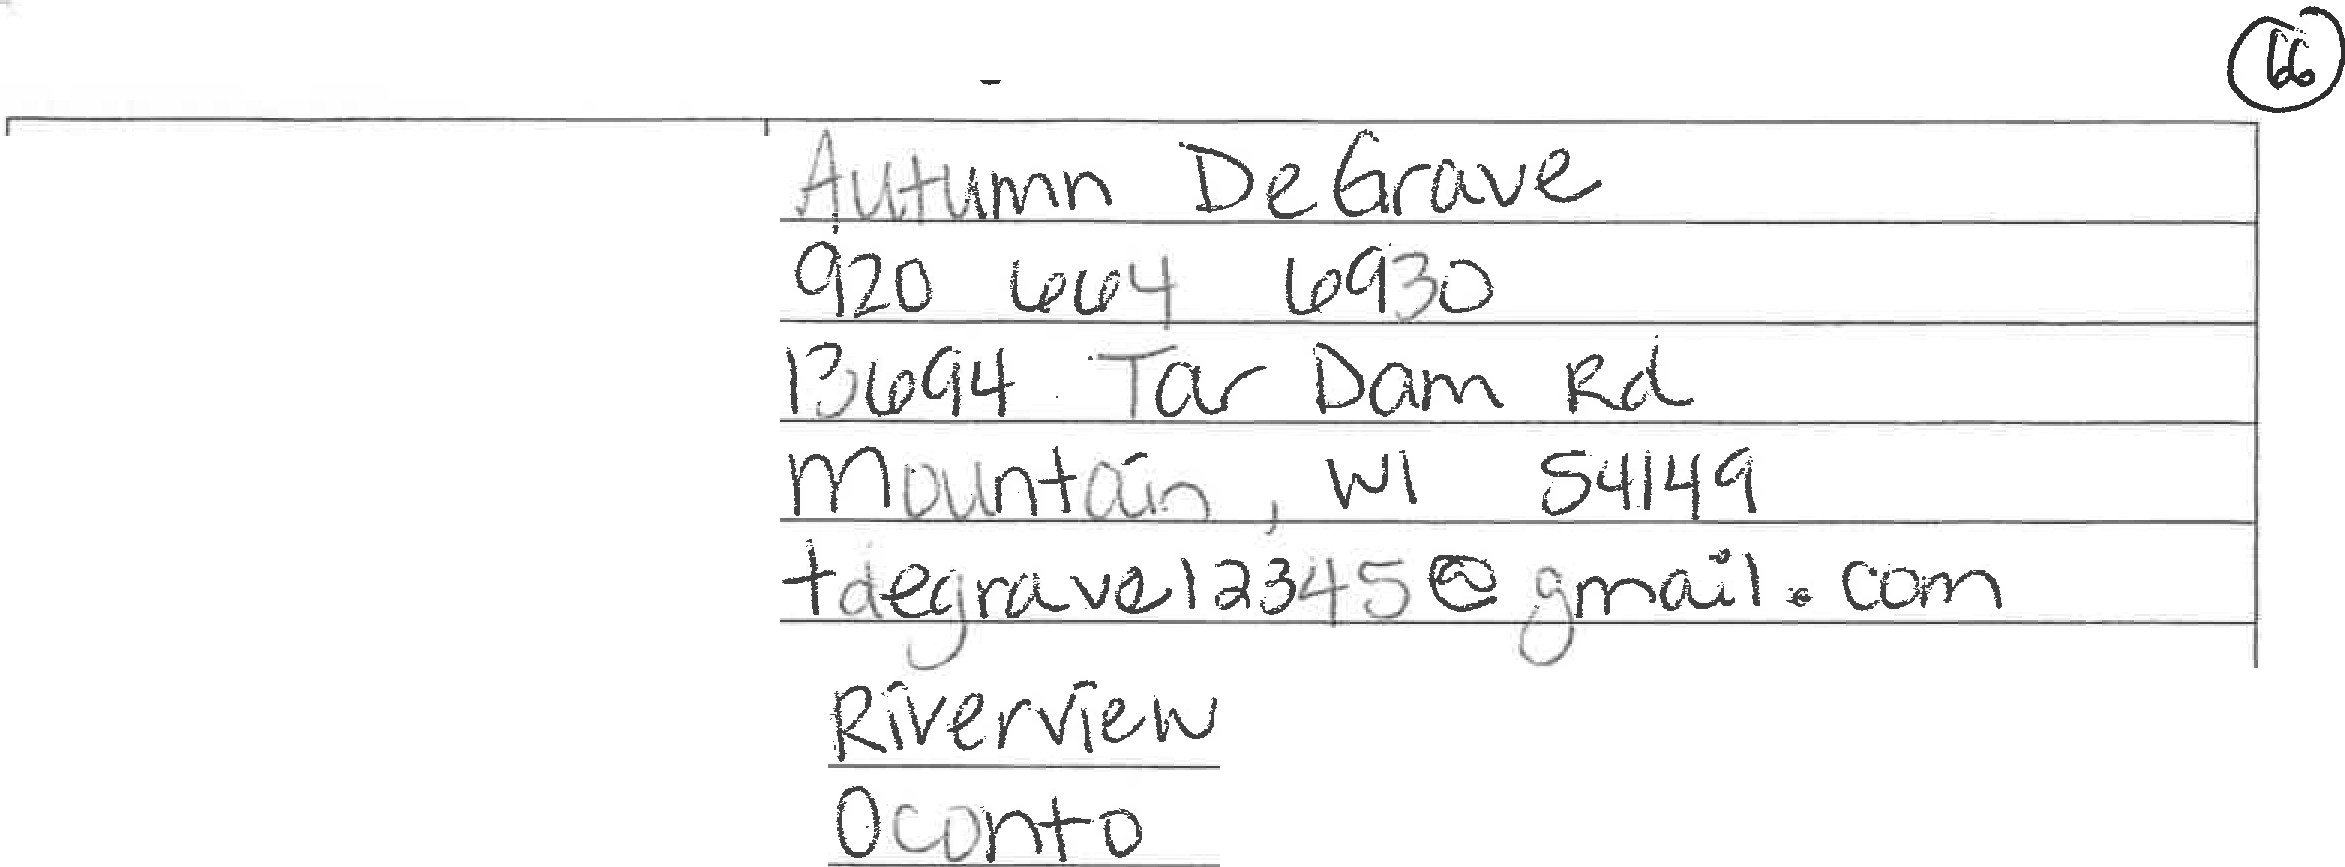 66
Autumn DeGrave
920 664 6930
13694 Tar Dam Rd
Mountain, WI 54149
tdegrave12345@gmail.com
Riverview
Oconto